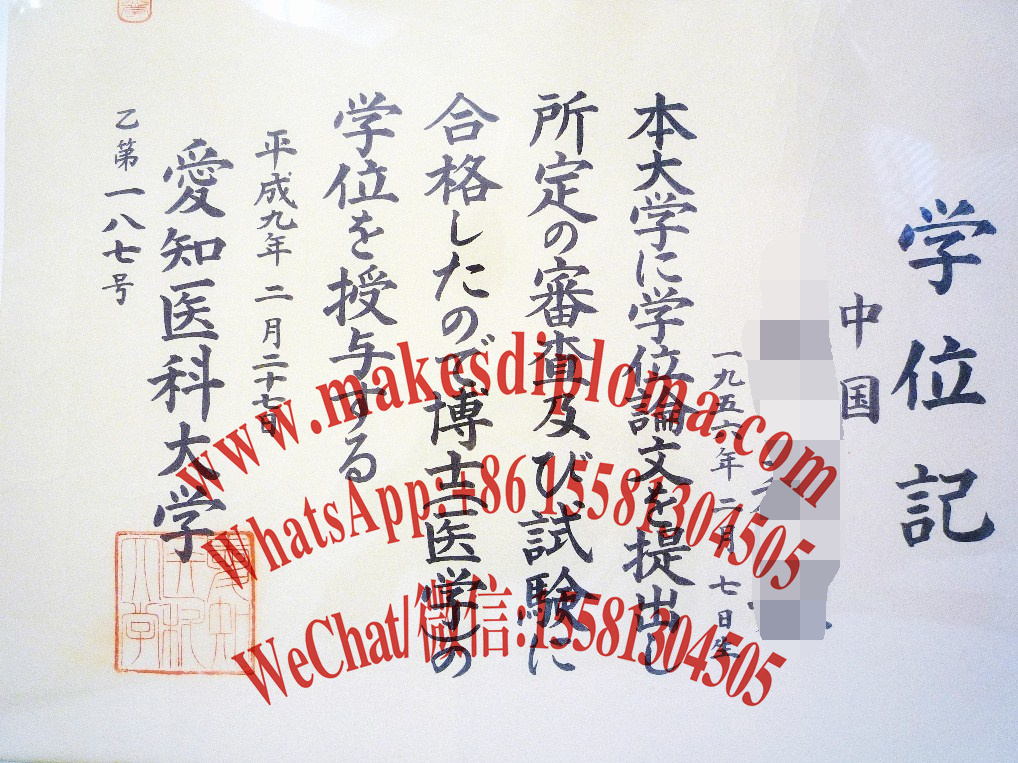 学位記
中国
一九五六年 二月 七日生
本大学に学位論文を提出し
所定の審査及び試験に
合格したので博士(医学)の
学位を授与する
平成九年 二月二十七日
愛知医科大学
乙第一八七号
www.makesdiploma.com
WhatsApp: +86 15581304505
WeChat/微信:15581304505